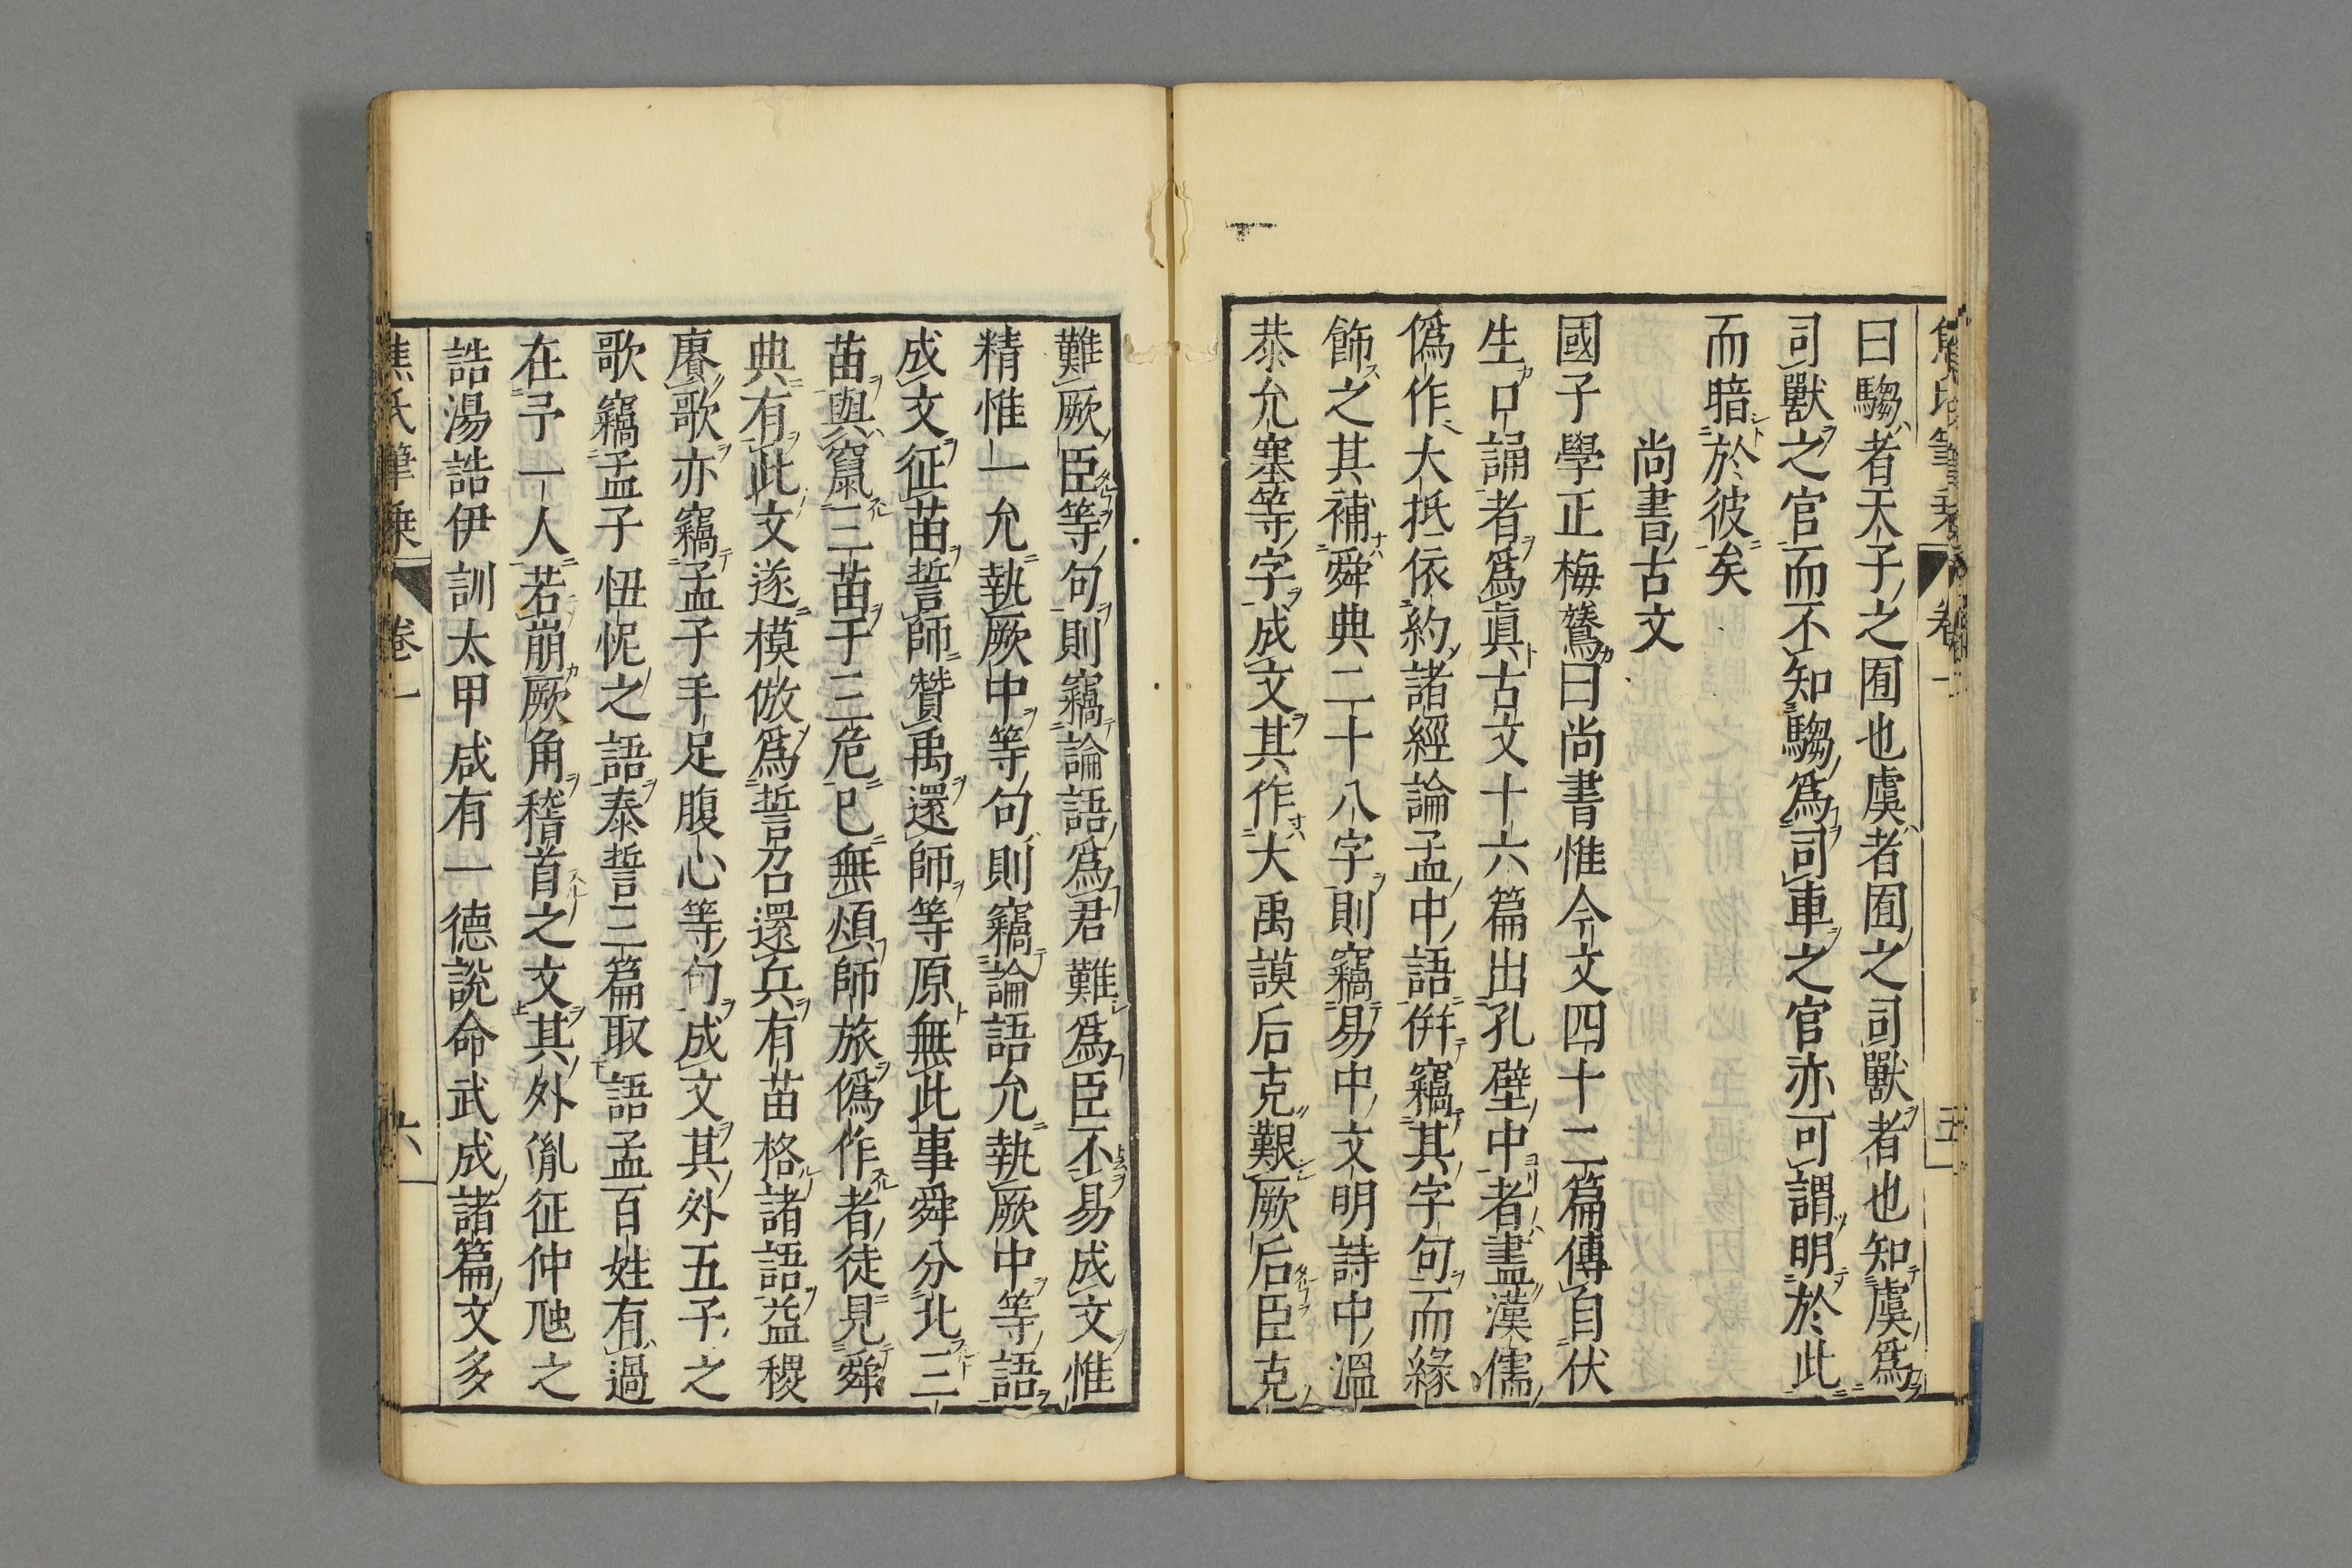 焦氏筆乘 卷一 五
曰騶者天子之囿也虞者囿之司獸者也知虞爲
司獸之官而不知騶爲司車之官亦可謂明於此
而暗於彼矣
尚書古文
國子學正梅鷟曰尚書惟今文四十二篇傳自伏
生口誦者爲眞古文十六篇出孔壁中者盡漢儒
僞作大抵依約諸經論孟中語倂竊其字句而緣
飾之其補舜典二十八字則竊易中文明詩中溫
恭允塞等字成文其作大禹謨后克艱厥后臣克
難厥臣等句則竊論語爲君難爲臣不易成文惟
精惟一允執厥中等句則竊論語允執厥中等語
成文征苗誓師贊禹還師等原無此事舜分北三
苗與竄三苗于三危已無煩師旅僞作者徒見舜
典有此文遂模倣爲誓召還兵有苗格諸語益稷
賡歌亦竊孟子手足腹心等句成文其外五子之
歌竊孟子忸怩之語泰誓三篇取語孟百姓有過
在予一人若崩厥角稽首之文其外胤征仲虺之
誥湯誥伊訓太甲咸有一德說命武成諸篇文多
焦氏筆乘 卷一 六